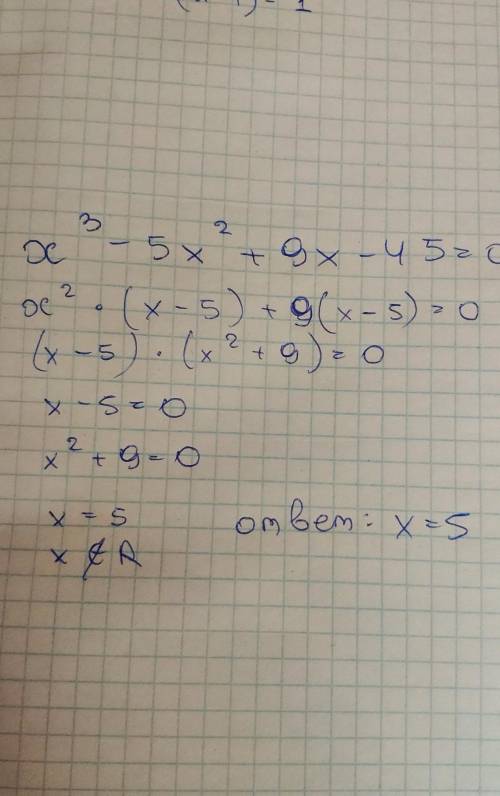 x³ - 5x² + 9x - 45 = 0
x² · (x - 5) + 9(x - 5) = 0
(x - 5) · (x² + 9) = 0
x - 5 = 0
x² + 9 = 0
x = 5 ответ: x = 5
x ∉ R